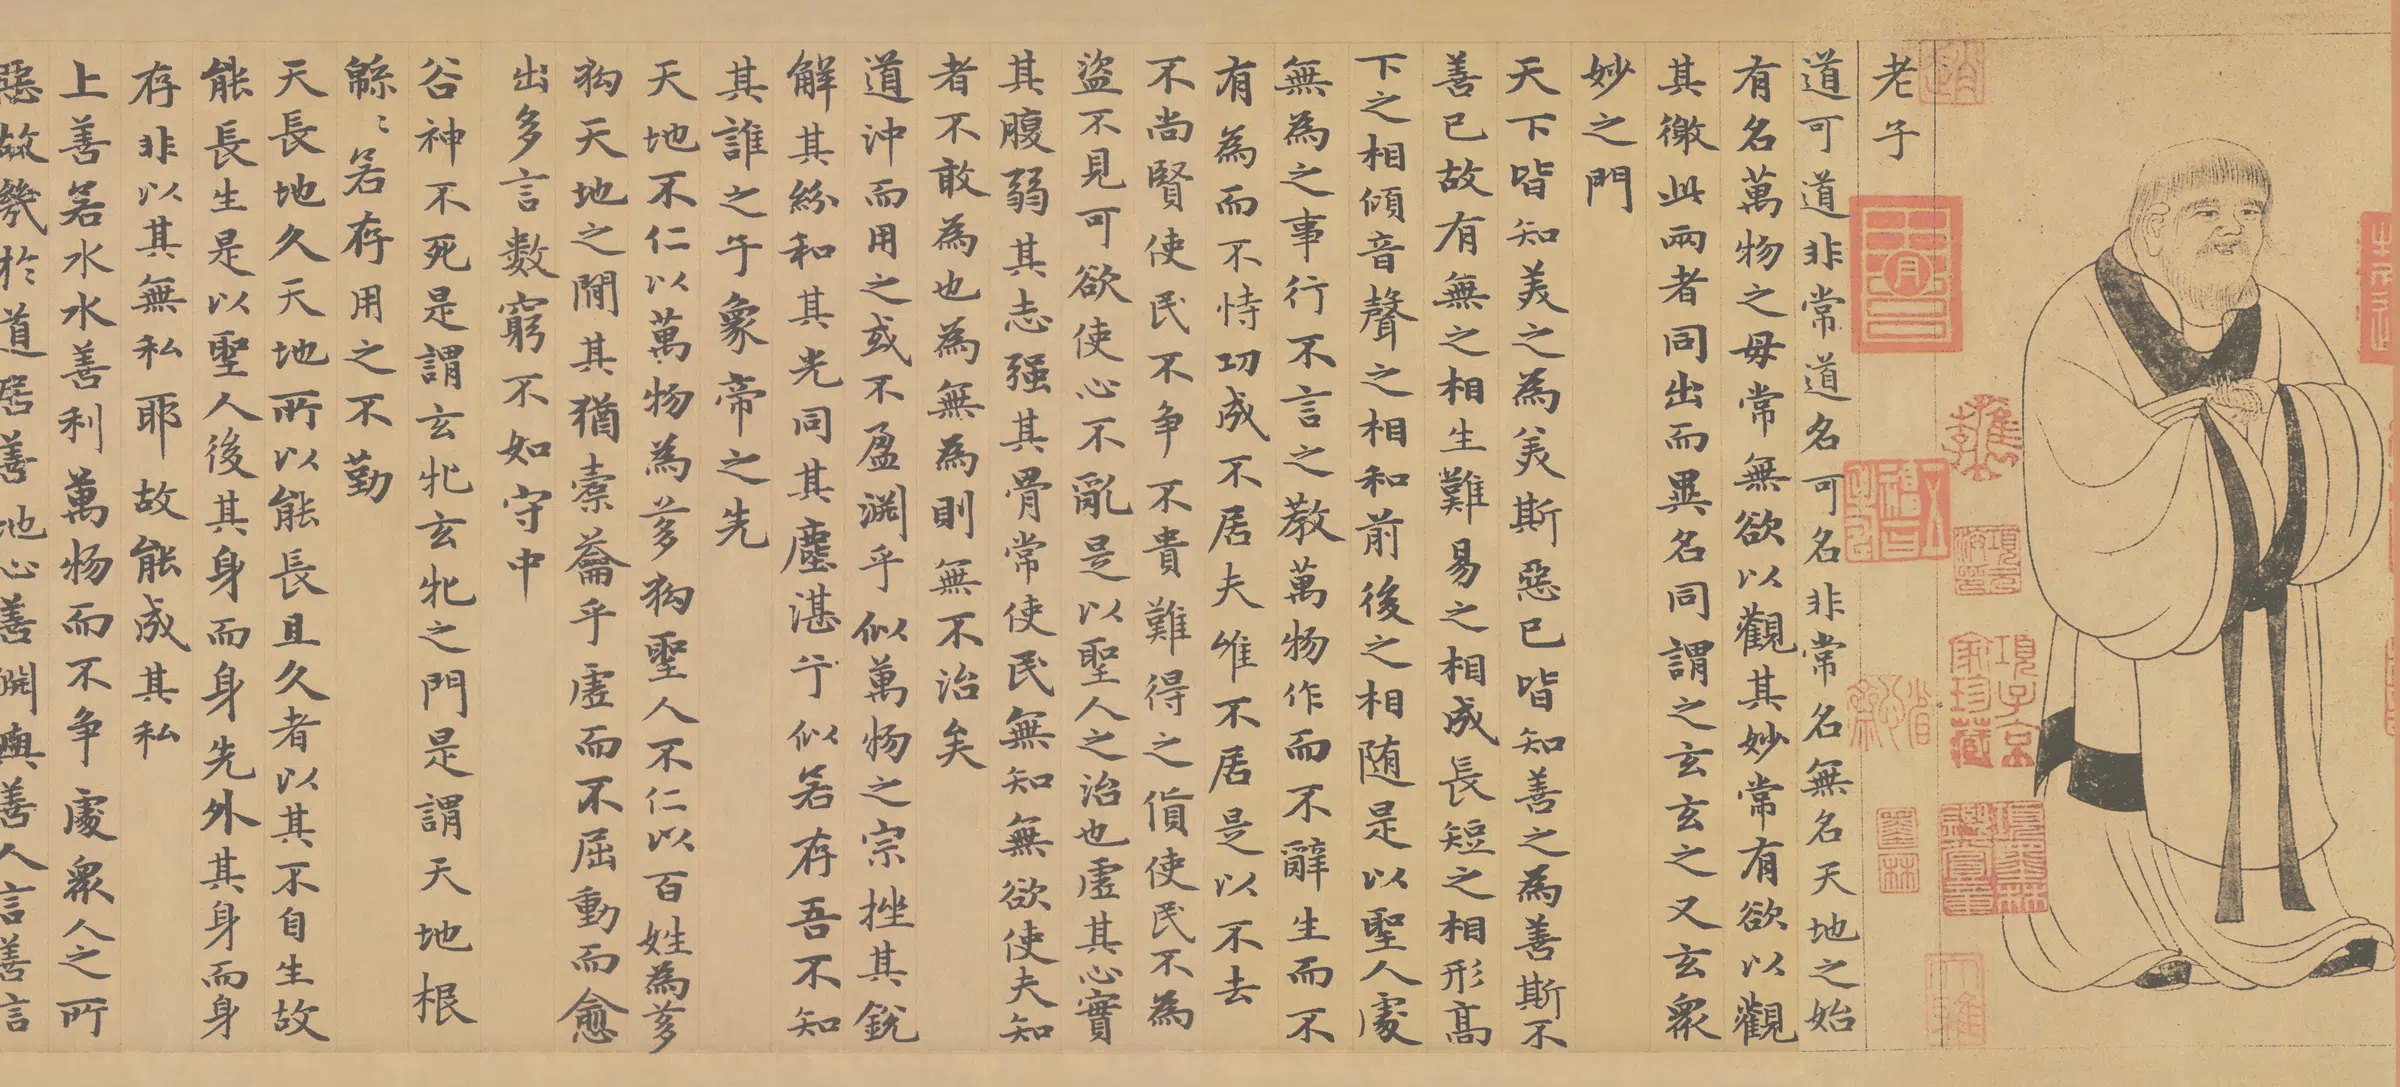 老子
道可道非常道名可名非常名無名天地之始
有名萬物之母常無欲以觀其妙常有欲以觀
其徼此兩者同出而異名同謂之玄玄之又玄衆
妙之門
天下皆知美之為美斯惡已皆知善之為善斯不
善已故有無之相生難易之相成長短之相形高
下之相傾音聲之相和前後之相随是以聖人處
無為之事行不言之教萬物作而不辭生而不
有為而不恃功成不居夫惟不居是以不去
不尚賢使民不争不貴難得之貨使民不為
盜不見可欲使心不亂是以聖人之治也虛其心實
其腹弱其志强其骨常使民無知無欲使夫知
者不敢為也為無為則無不治矣
道沖而用之或不盈淵乎似萬物之宗挫其銳
解其紛和其光同其塵湛兮似若存吾不知
其誰之子象帝之先
天地不仁以萬物為芻狗聖人不仁以百姓為芻
狗天地之間其猶橐籥乎虛而不屈動而愈
出多言數窮不如守中
谷神不死是謂玄牝玄牝之門是謂天地根
緜〻若存用之不勤
天長地久天地所以能長且久者以其不自生故
能長生是以聖人後其身而身先外其身而身
存非以其無私耶故能成其私
上善若水水善利萬物而不争處衆人之所
惡故幾於道居善地心善淵與善人言善言
項子京家珍藏